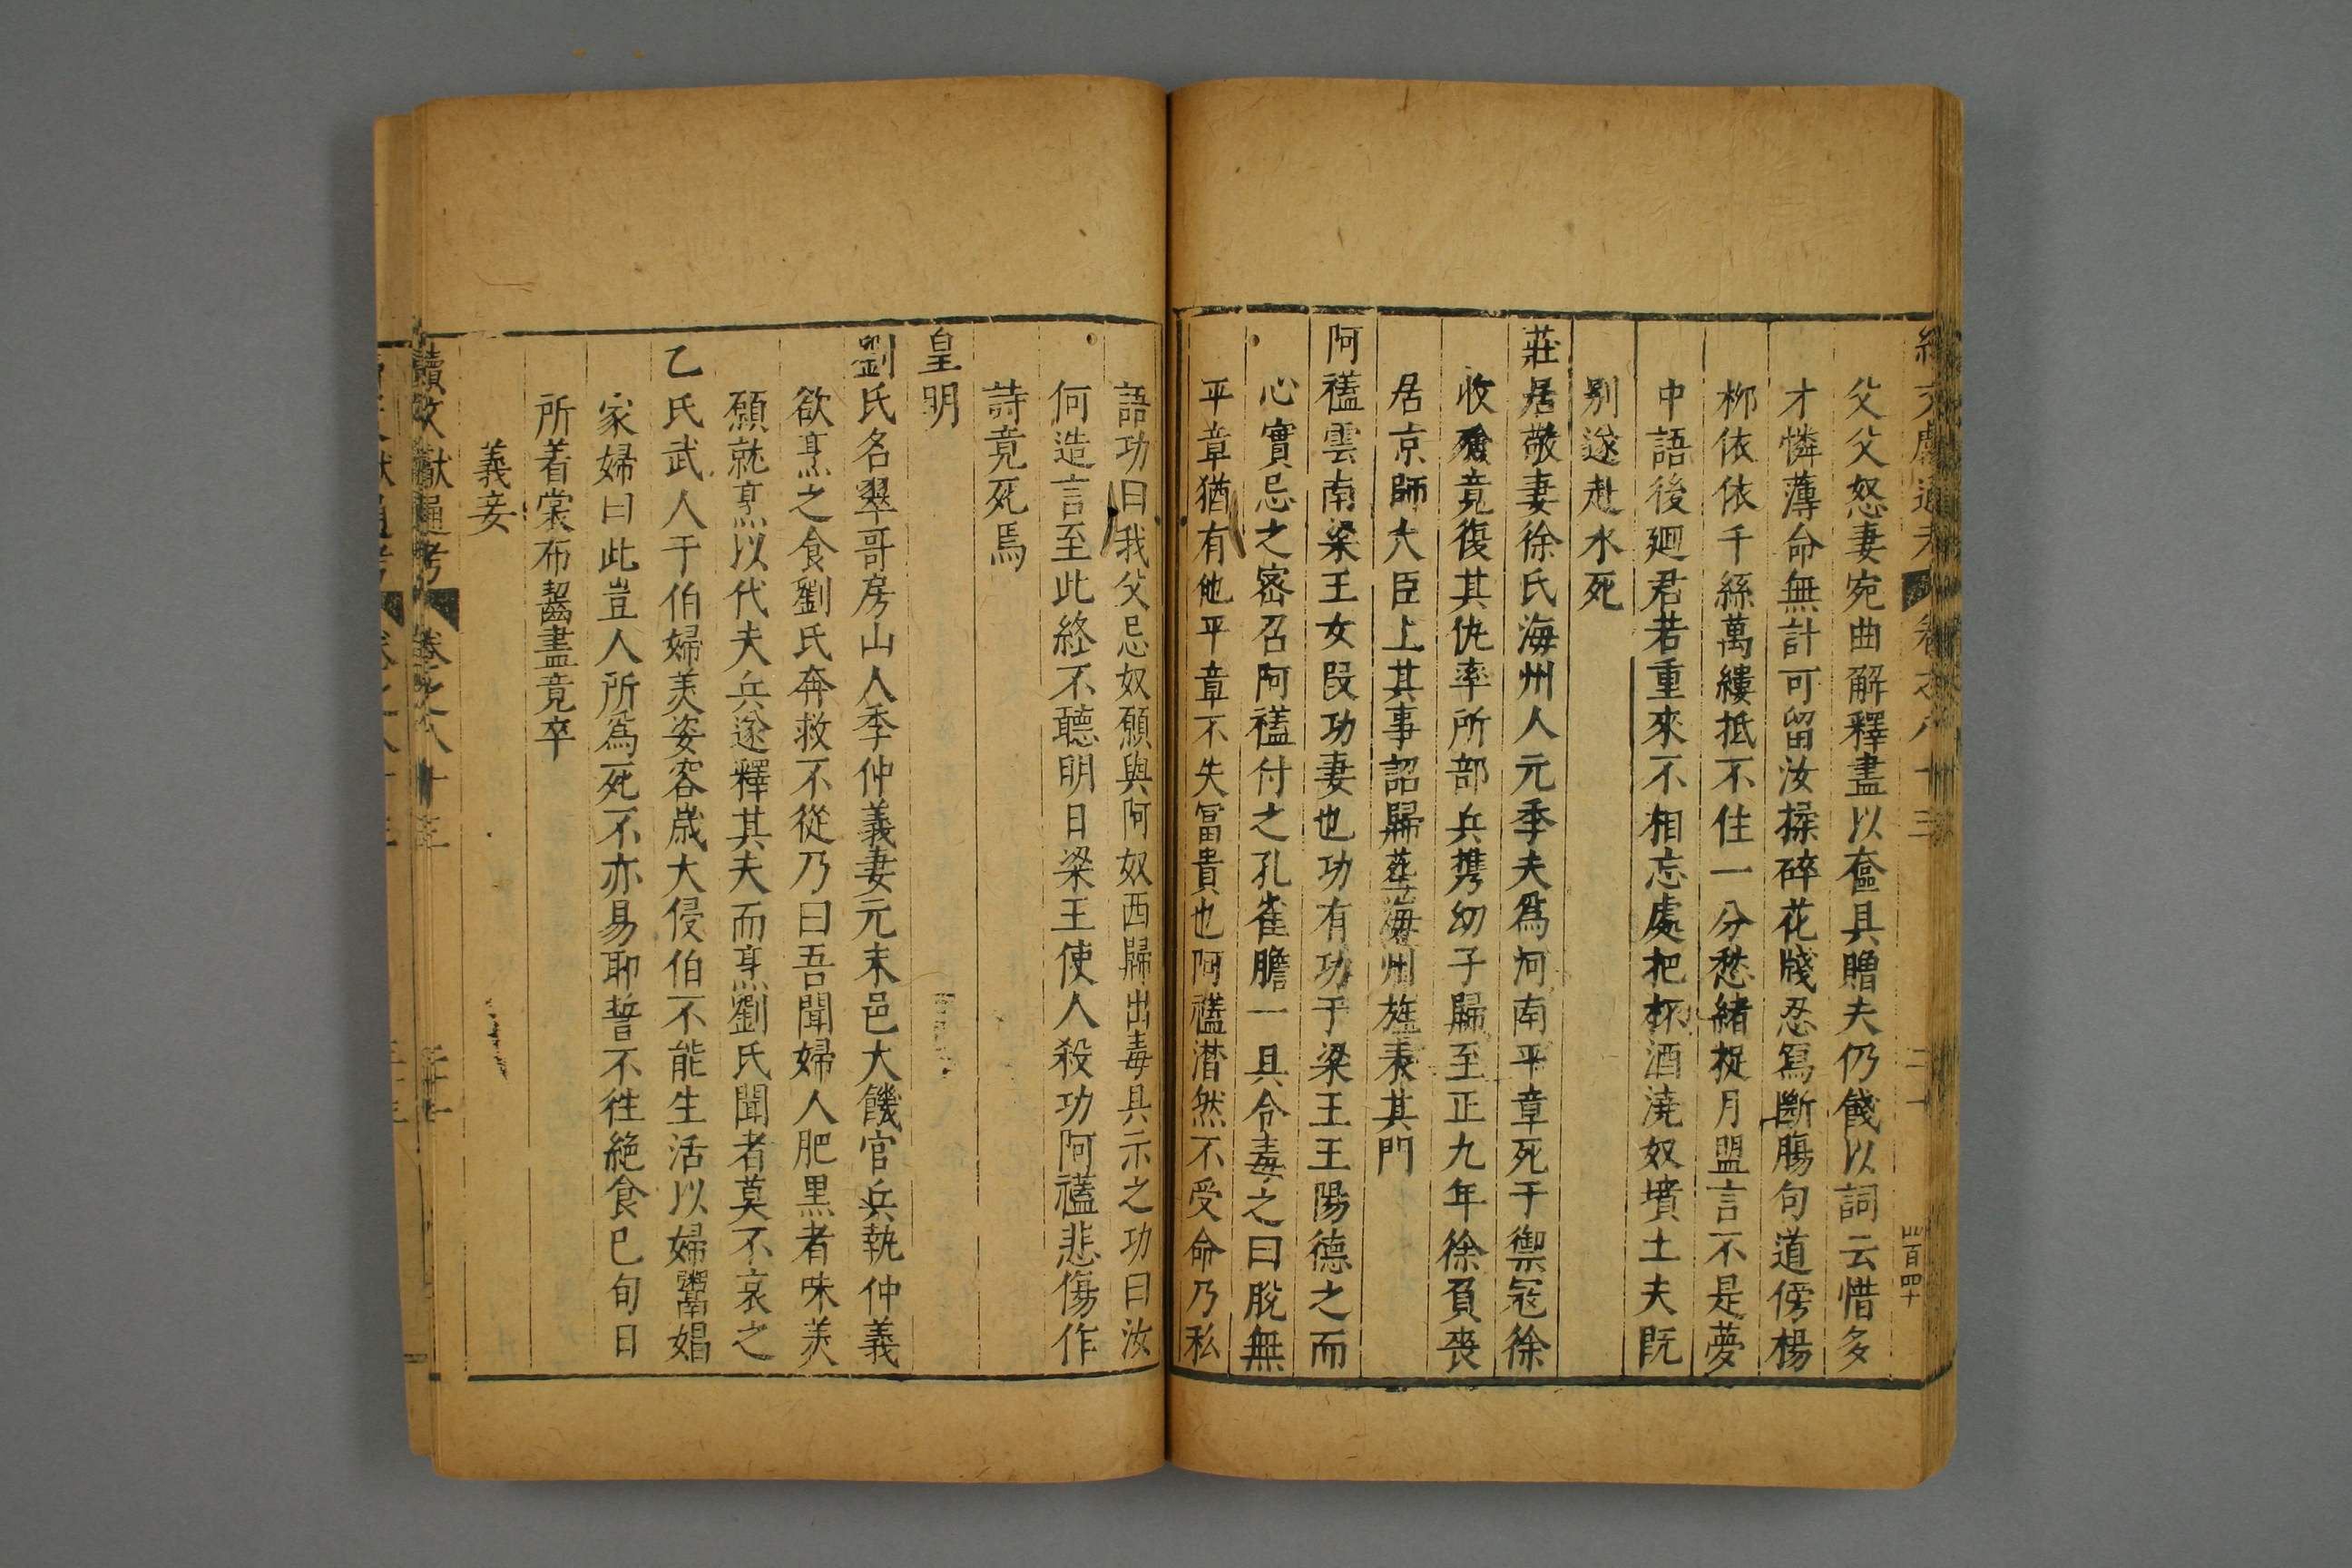 父父怒妻宛曲解釋盡以奩具贈夫仍餞以詞云惜多
才憐薄命無計可留汝揉碎花牋忍寫斷腸句道傍楊
柳依依千絲萬縷抵不住一分愁緒捉月盟言不是夢
中語後廻君若重來不相忘處把杯酒澆奴墳土夫既
別遂赴水死
莊居敬妻徐氏海州人元季夫爲河南平章死于禦寇徐
收殮竟復其仇率所部兵携幼子歸至正九年徐負喪
居京師大臣上其事詔歸葬海州旌表其門
阿䄡雲南梁王女段功妻也功有功于梁王王陽德之而
心實忌之密召阿䄡付之孔雀膽一具令毒之曰脫無
平章猶有他平章不失冨貴也阿䄡潜然不受命乃私
語功曰我父忌奴願與阿奴西歸出毒具示之功曰汝
何造言至此終不聽明日梁王使人殺功阿䄡悲傷作
詩竟死焉
皇明
劉氏名翠哥房山人季仲義妻元末邑大饑官兵執仲義
欲烹之食劉氏奔救不從乃曰吾聞婦人肥黑者味美
願就烹以代夫兵遂釋其夫而烹劉氏聞者莫不哀之
乙氏武人于伯婦美姿容歲大侵伯不能生活以婦鬻娼
家婦曰此豈人所爲死不亦易耶誓不徃絶食已旬日
所着裳布齧盡竟卒
義妾
續文獻通考
卷之八十三